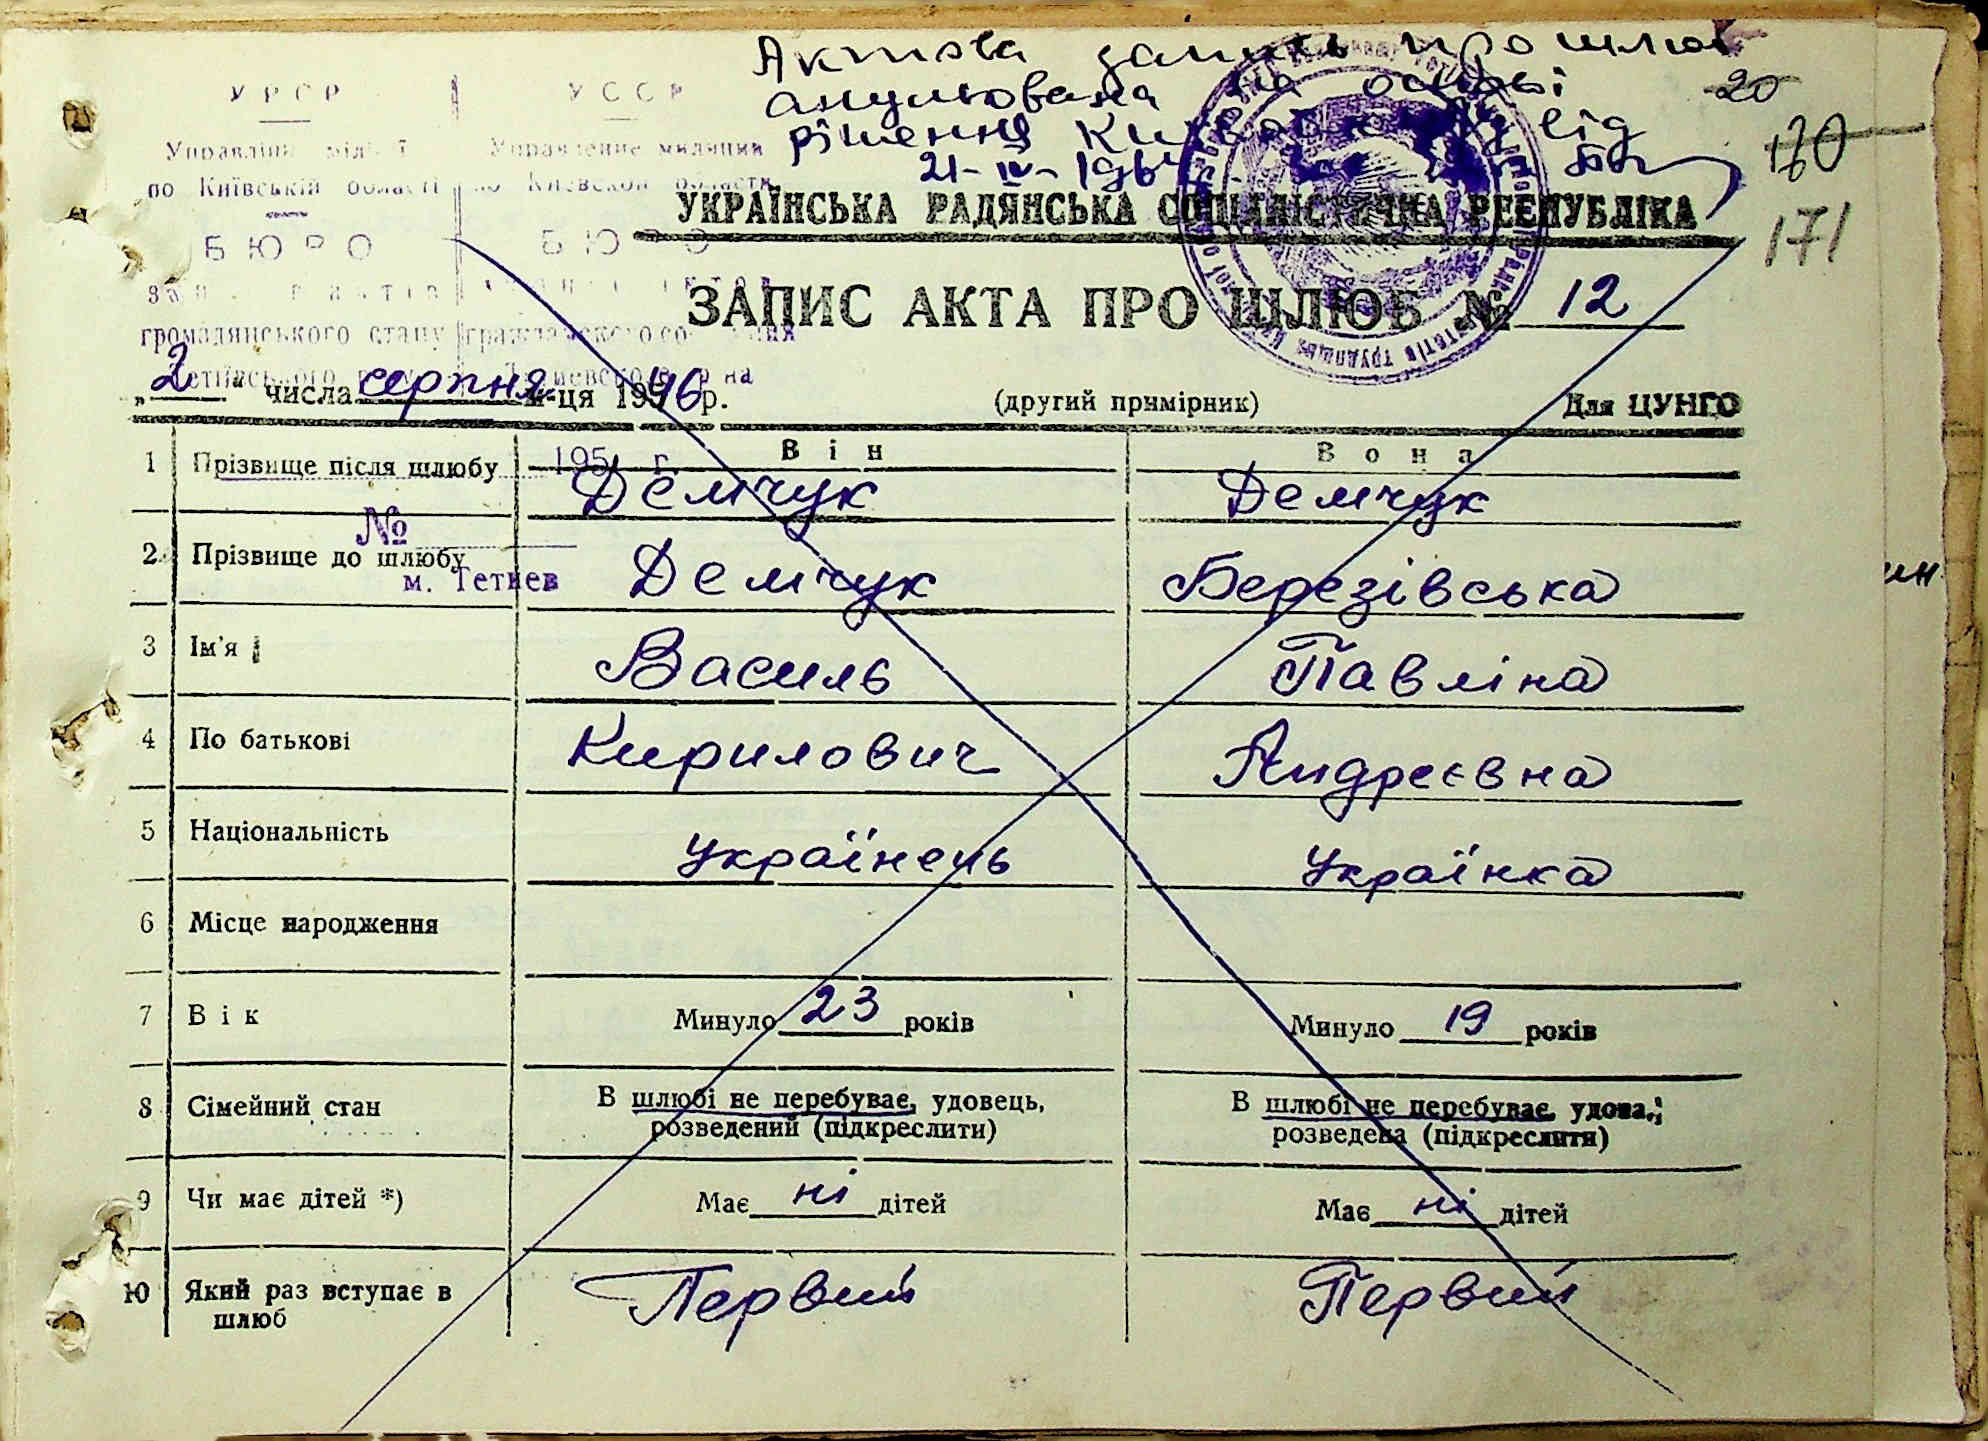 Актова запис про шлюб
анульована на основі
рішення від
21-IV-196
20
170
171
УРСР УССР
Управління міліції Управление милиции
по Київській області по Киевской области
БЮРО БЮРО
УКРАЇНСЬКА РАДЯНСЬКА СОЦІАЛІСТИЧНА РЕСПУБЛІКА
ЗАПИС АКТА ПРО ШЛЮБ № 12
громадянського стану гражданского состояния
"2" числа серпня м-ця 1946 р. (другий примірник) Для ЦУНГО
195 г.
Він Вона
1 Прізвище після шлюбу Демчук Демчук
№
2 Прізвище до шлюбу Демчук Березівська
м. Тетиев
3 Ім'я Василь Павліна
4 По батькові Кирилович Андреєвна
5 Національність Українець Українка
6 Місце народження
7 Вік Минуло 23 років Минуло 19 років
8 Сімейний стан В шлюбі не перебуває, удовець, В шлюбі не перебуває, удова,
розведений (підкреслити) розведена (підкреслити)
9 Чи має дітей *) Має ні дітей Має ні дітей
10 Який раз вступає в Первий Первий
шлюб